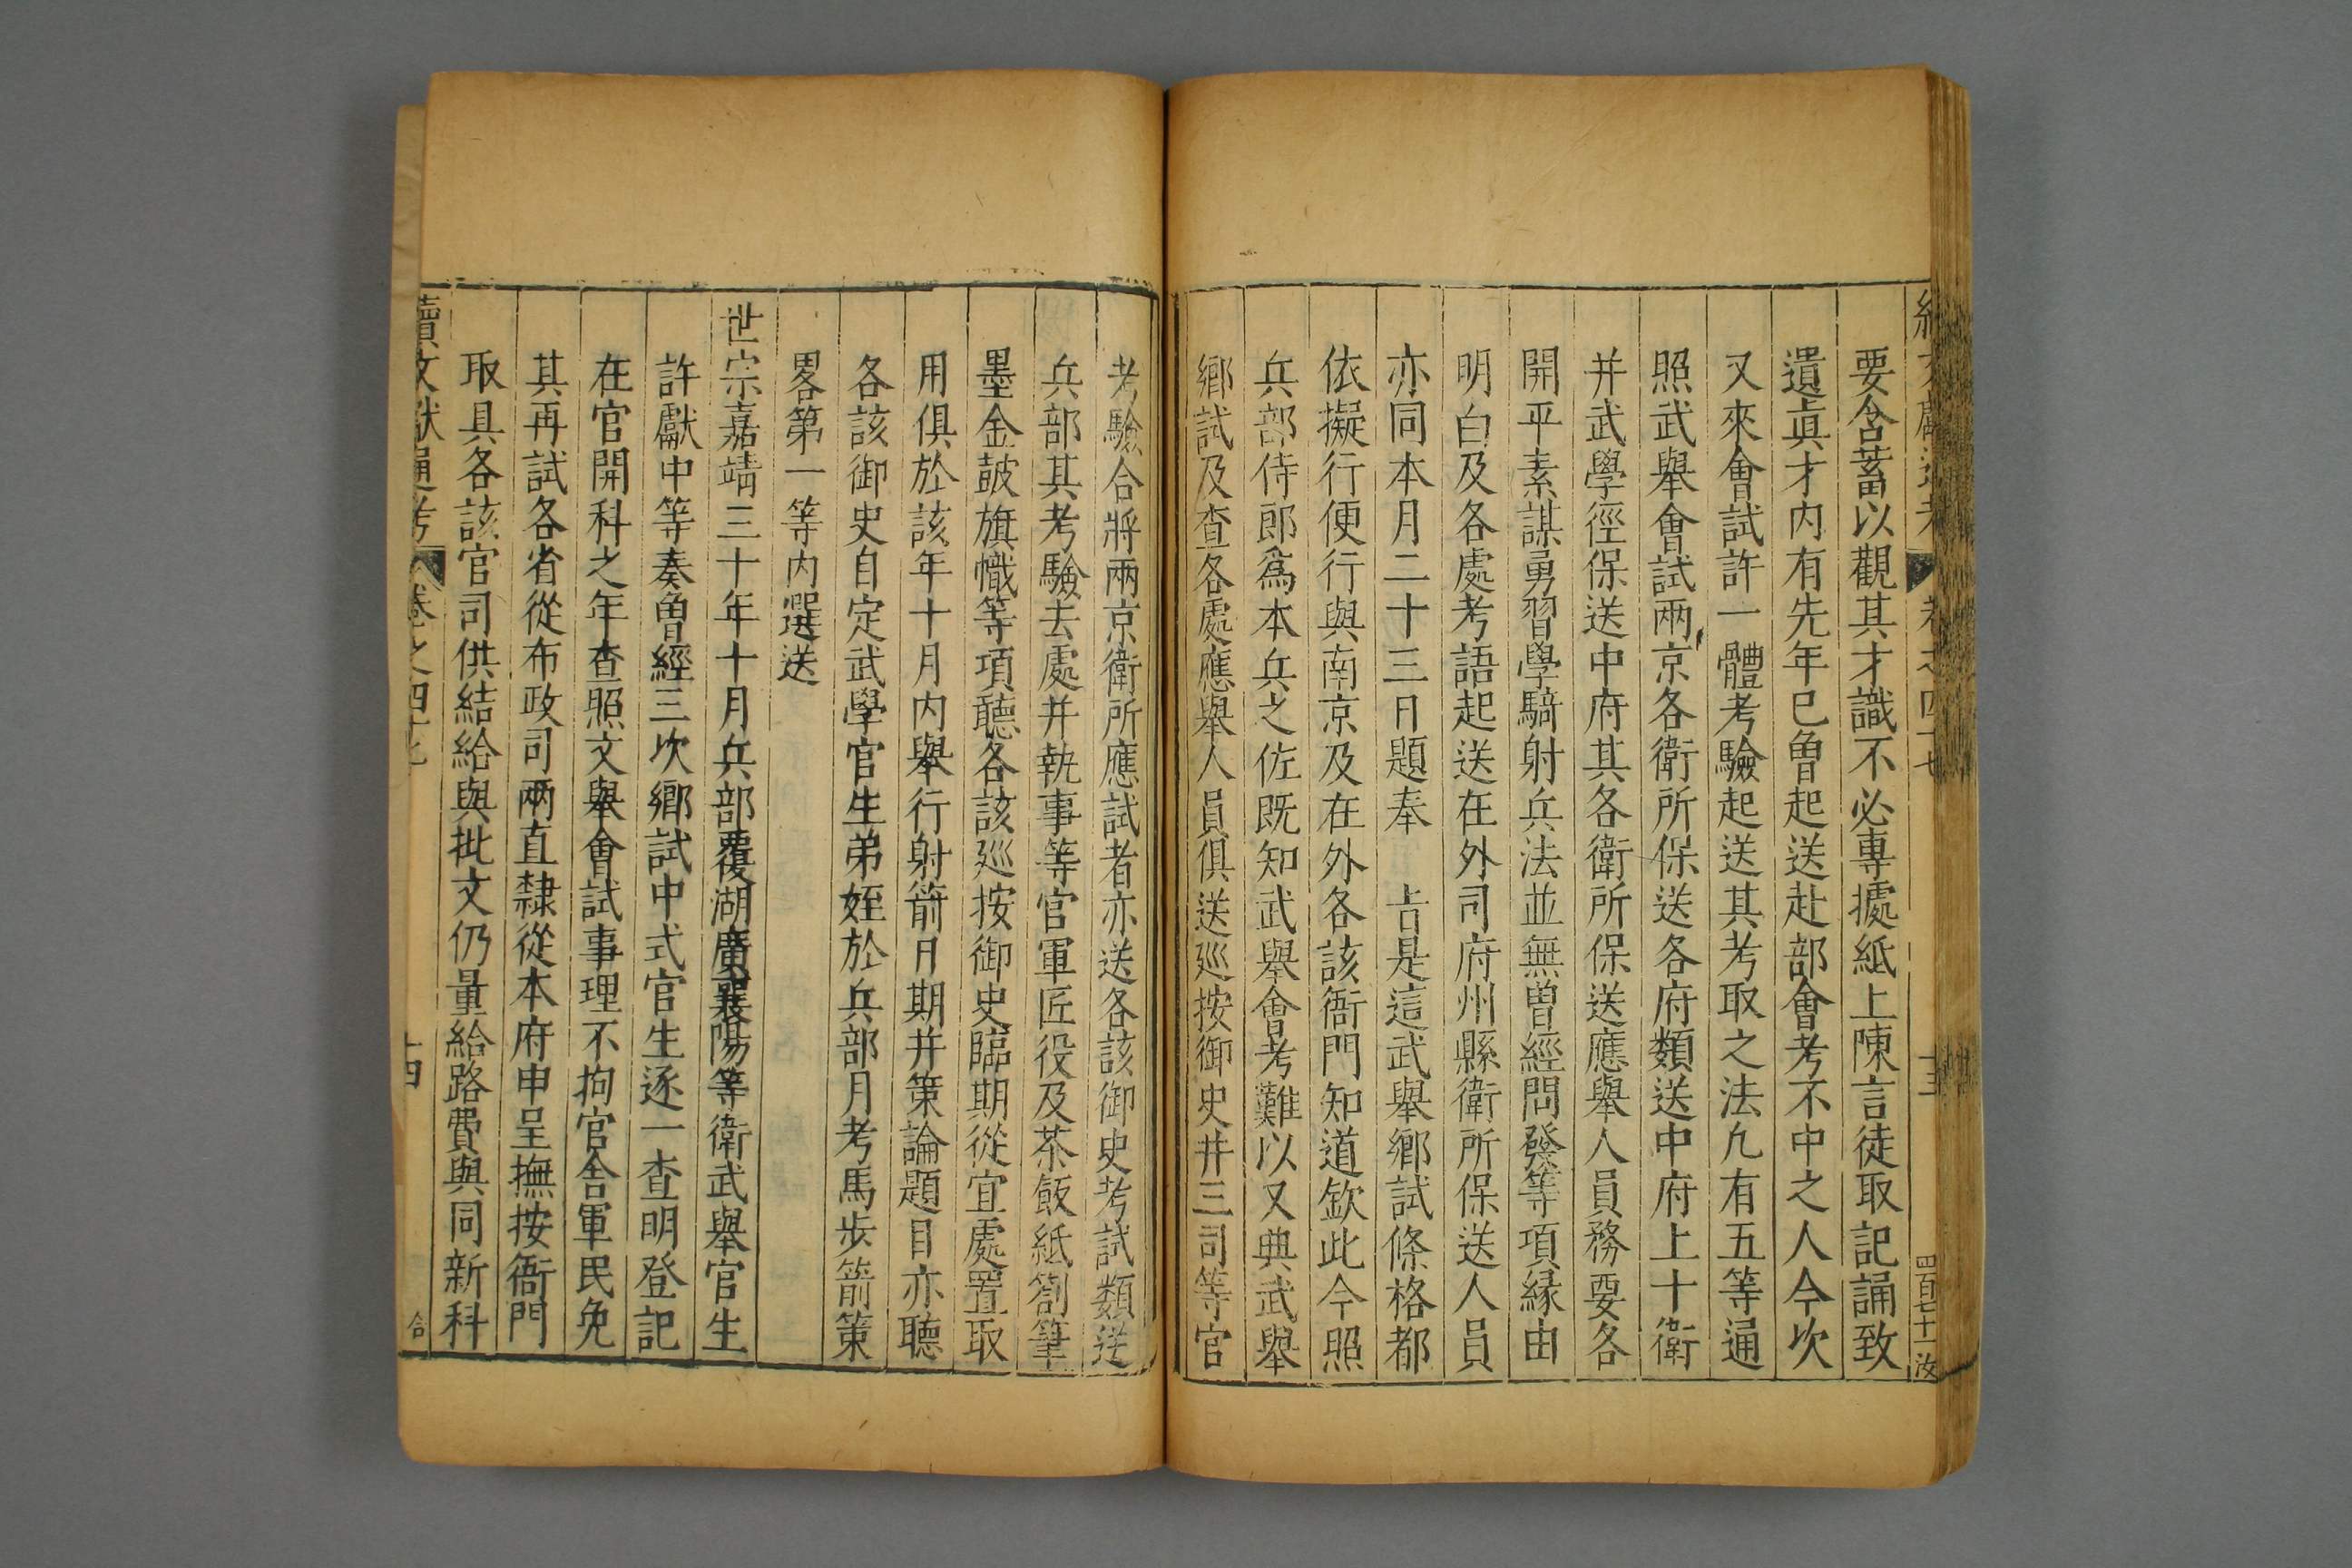 要含蓄以觀其才識不必專據紙上陳言徒取記誦致
遺眞才内有先年已曽起送赴部會考不中之人今次
又來會試許一體考驗起送其考取之法凢有五等通
照武舉會試兩京各衛所保送各府類送中府上十衛
并武學徑保送中府其各衛所保送應舉人員務要各
開平素謀勇習學騎射兵法並無曽經問發等項縁由
明白及各處考語起送在外司府州縣衛所保送人員
亦同本月二十三日題奉　吉是這武舉鄉試條格都
依擬行便行與南京及在外各該衙門知道欽此今照
兵部侍郎爲本兵之佐既知武舉會考難以又典武舉
鄉試及查各處應舉人員俱送廵按御史并三司等官
考驗合將兩京衛所應試者亦送各該御史考試類送
兵部其考驗去處并執事等官軍匠役及茶飯紙劄筆
墨金鼓旗幟等項聽各該廵按御史臨期從宜處置取
用俱於該年十月内舉行射箭日期并策論題目亦聽
各該御史自定武學官生弟姪於兵部月考馬步箭策
畧第一等内選送
世宗嘉靖三十年十月兵部覆湖廣襄陽等衛武舉官生
許獻中等奏曽經三次鄉試中式官生逐一查明登記
在官開科之年查照文舉會試事理不拘官舍軍民免
其再試各省從布政司兩直隸從本府申呈撫按衙門
取具各該官司供結給與批文仍量給路費與同新科
續文獻通考　卷之四十七　十四